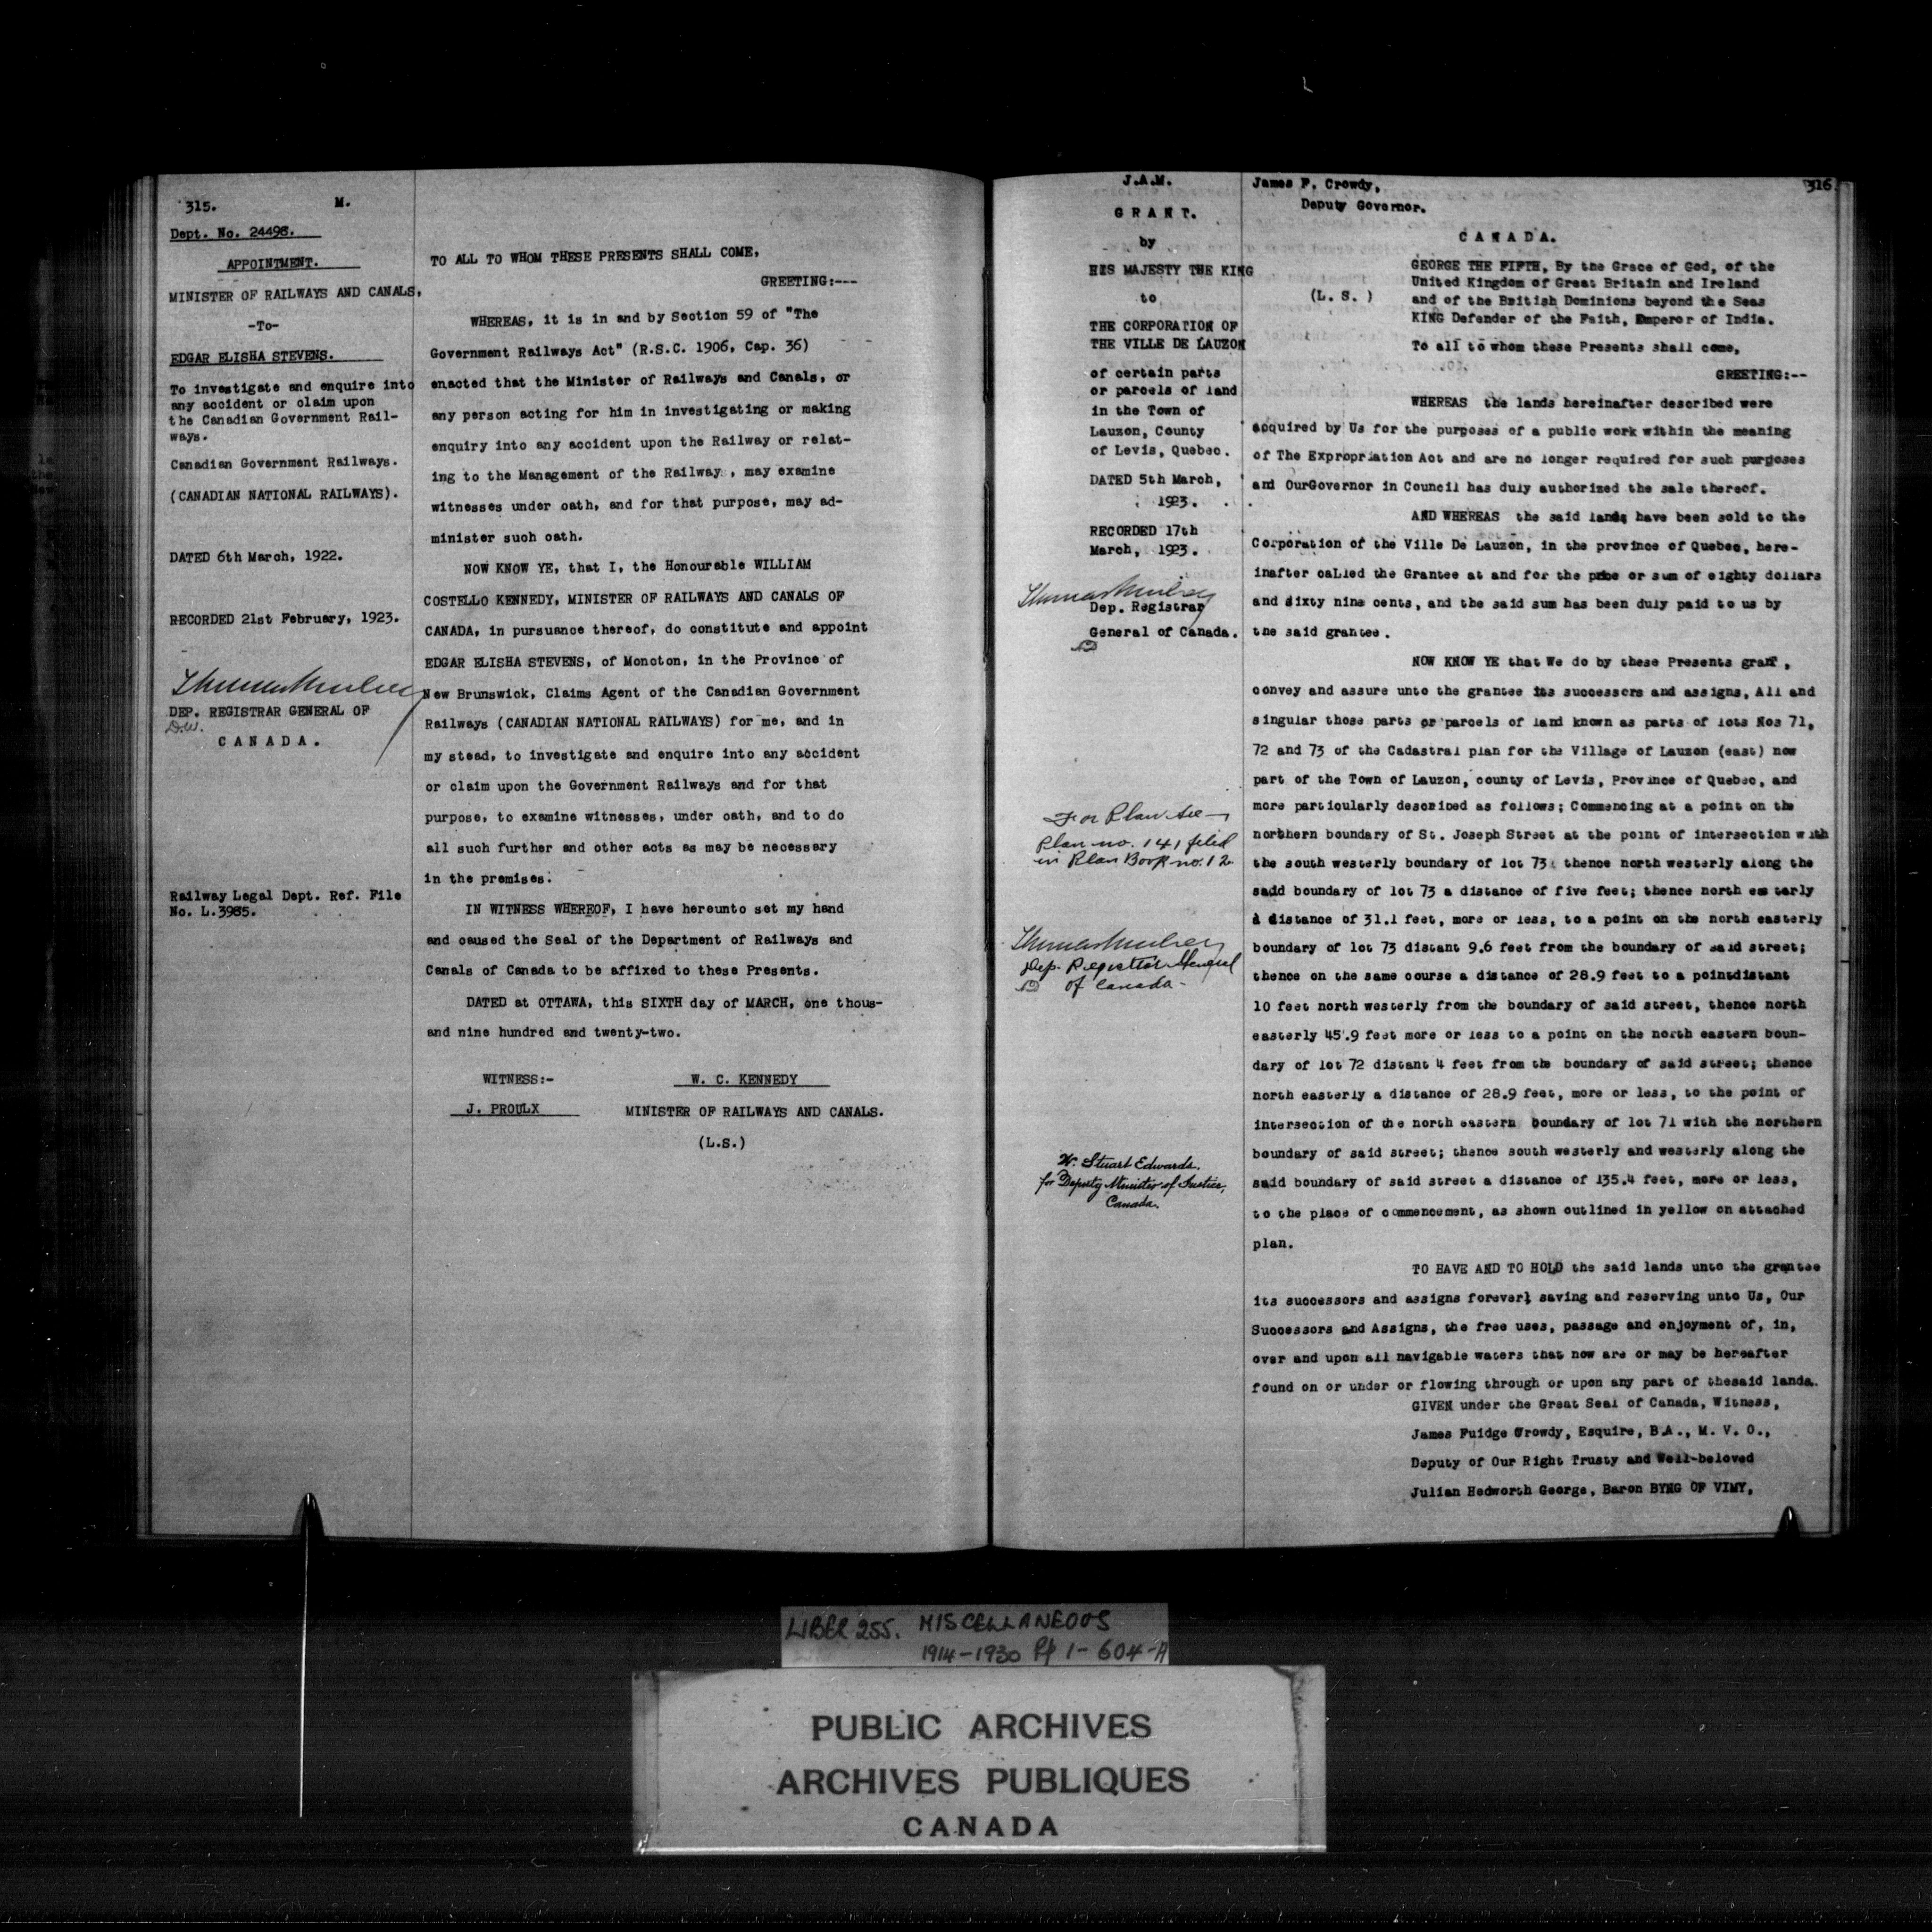 315.
M.
Dept. No. 24498.
APPOINTMENT.
MINISTER OF RAILWAYS AND CANALS,
-To-
EDGAR ELISHA STEVENS.
To investigate and enquire into
any accident or claim upon
the Canadian Government Rail-
ways.
Canadian Government Railways.
(CANADIAN NATIONAL RAILWAYS).
DATED 6th March, 1922.
RECORDED 21st February, 1923.
DEP. REGISTRAR GENERAL OF
D.W.
CANADA.
Railway Legal Dept. Ref. File
No. L.3985.
TO ALL TO WHOM THESE PRESENTS SHALL COME,
GREETING:---
WHEREAS, it is in and by Section 59 of "The
Government Railways Act" (R.S.C. 1906, Cap. 36)
enacted that the Minister of Railways and Canals, or
any person acting for him in investigating or making
enquiry into any accident upon the Railway or relat-
ing to the Management of the Railway, may examine
witnesses under oath, and for that purpose, may ad-
minister such oath.
NOW KNOW YE, that I, the Honourable WILLIAM
COSTELLO KENNEDY, MINISTER OF RAILWAYS AND CANALS OF
CANADA, in pursuance thereof, do constitute and appoint
EDGAR ELISHA STEVENS, of Moncton, in the Province of
New Brunswick, Claims Agent of the Canadian Government
Railways (CANADIAN NATIONAL RAILWAYS) for me, and in
my stead, to investigate and enquire into any accident
or claim upon the Government Railways and for that
purpose, to examine witnesses, under oath, and to do
all such further and other acts as may be necessary
in the premises.
IN WITNESS WHEREOF, I have hereunto set my hand
and caused the Seal of the Department of Railways and
Canals of Canada to be affixed to these Presents.
DATED at OTTAWA, this SIXTH day of MARCH, one thous-
and nine hundred and twenty-two.
WITNESS:-
W. C. KENNEDY
J. PROULX
MINISTER OF RAILWAYS AND CANALS.
(L.S.)
J.A.M.
GRANT.
by
HIS MAJESTY THE KING
to
THE CORPORATION OF
THE VILLE DE LAUZON
of certain parts
or parcels of land
in the Town of
Lauzon, County
of Levis, Quebec.
DATED 5th March,
1923.
RECORDED 17th
March, 1923.
Thomas Mulvey
Dep. Registrar
General of Canada.
For Plan see
Plan no. 141 filed
in Plan Book no. 12
Thomas Mulvey
Dep. Registrar General
of Canada-
W. Stuart Edwards.
for Deputy Minister of Justice,
Canada.
316.
James F. Crowdy,
Deputy Governor.
CANADA.
(L. S. )
GEORGE THE FIFTH, By the Grace of God, of the
United Kingdom of Great Britain and Ireland
and of the British Dominions beyond the Seas
KING Defender of the Faith, Emperor of India.
To all to whom these Presents shall come,
GREETING:--
WHEREAS the lands hereinafter described were
acquired by Us for the purposes of a public work within the meaning
of The Expropriation Act and are no longer required for such purposes
and OurGovernor in Council has duly authorized the sale thereof.
AND WHEREAS the said lands have been sold to the
Corporation of the Ville De Lauzon, in the province of Quebec, here-
inafter caLled the Grantee at and for the price or sum of eighty dollars
and sixty nine cents, and the said sum has been duly paid to us by
the said grantee.
NOW KNOW YE that We do by these Presents grant,
convey and assure unto the grantee its successors and assigns, All and
singular those parts or parcels of land known as parts of lots Nos 71,
72 and 73 of the Cadastral plan for the Village of Lauzon (east) now
part of the Town of Lauzon, county of Levis, Province of Quebec, and
more particularly described as follows; Commencing at a point on the
northern boundary of St. Joseph Street at the point of intersection with
the south westerly boundary of lot 73 thence north westerly along the
said boundary of lot 73 a distance of five feet; thence north easterly
a distance of 31.1 feet, more or less, to a point on the north easterly
boundary of lot 73 distant 9.6 feet from the boundary of said street;
thence on the same course a distance of 28.9 feet to a pointdistant
10 feet north westerly from the boundary of said street, thence north
easterly 45.9 feet more or less to a point on the north eastern boun-
dary of lot 72 distant 4 feet from the boundary of said street; thence
north easterly a distance of 28.9 feet, more or less, to the point of
intersection of the north eastern boundary of lot 71 with the northern
boundary of said street; thence south westerly and westerly along the
said boundary of said street a distance of 135.4 feet, more or less,
to the place of commencement, as shown outlined in yellow on attached
plan.
TO HAVE AND TO HOLD the said lands unto the grantee
its successors and assigns forever; saving and reserving unto Us, Our
Successors and Assigns, the free uses, passage and enjoyment of, in,
over and upon all navigable waters that now are or may be hereafter
found on or under or flowing through or upon any part of thesaid lands.
GIVEN under the Great Seal of Canada, Witness,
James Fuidge Crowdy, Esquire, B.A., M. V. O.,
Deputy of Our Right Trusty and Well-beloved
Julian Hedworth George, Baron BYNG OF VIMY,
LIBER 255. MISCELLANEOUS
1914-1930 Pp 1-604-A
PUBLIC ARCHIVES
ARCHIVES PUBLIQUES
CANADA